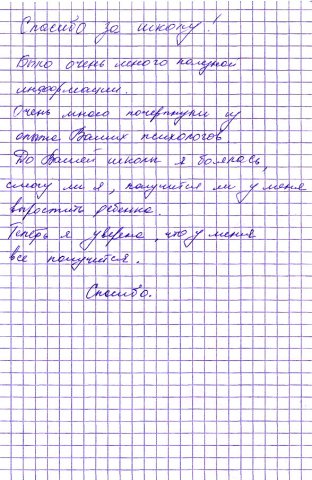 Спасибо за школу!
Было очень много полезной
информации.
Очень много почерпнули из
опыта Ваших психологов.
До Вашей школы я боялась,
смогу ли я, получится ли у меня
вырастить ребенка.
Теперь я уверена, что у меня
все получится.
Спасибо.